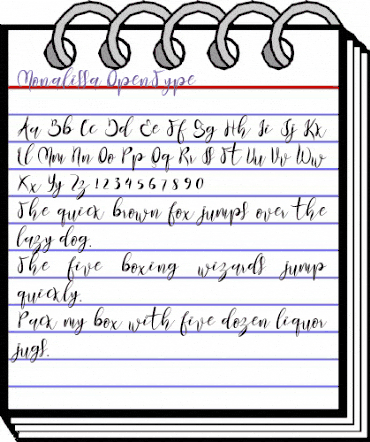 Monalissa OpenType
Aa Bb Cc Dd Ee Ff Gg Hh Ii Jj Kk
Ll Mm Nn Oo Pp Qq Rr Ss Tt Uu Vv Ww
Xx Yy Zz 1 2 3 4 5 6 7 8 9 0
The quick brown fox jumps over the
lazy dog.
The five boxing wizards jump
quickly.
Pack my box with five dozen liquor
jugs.